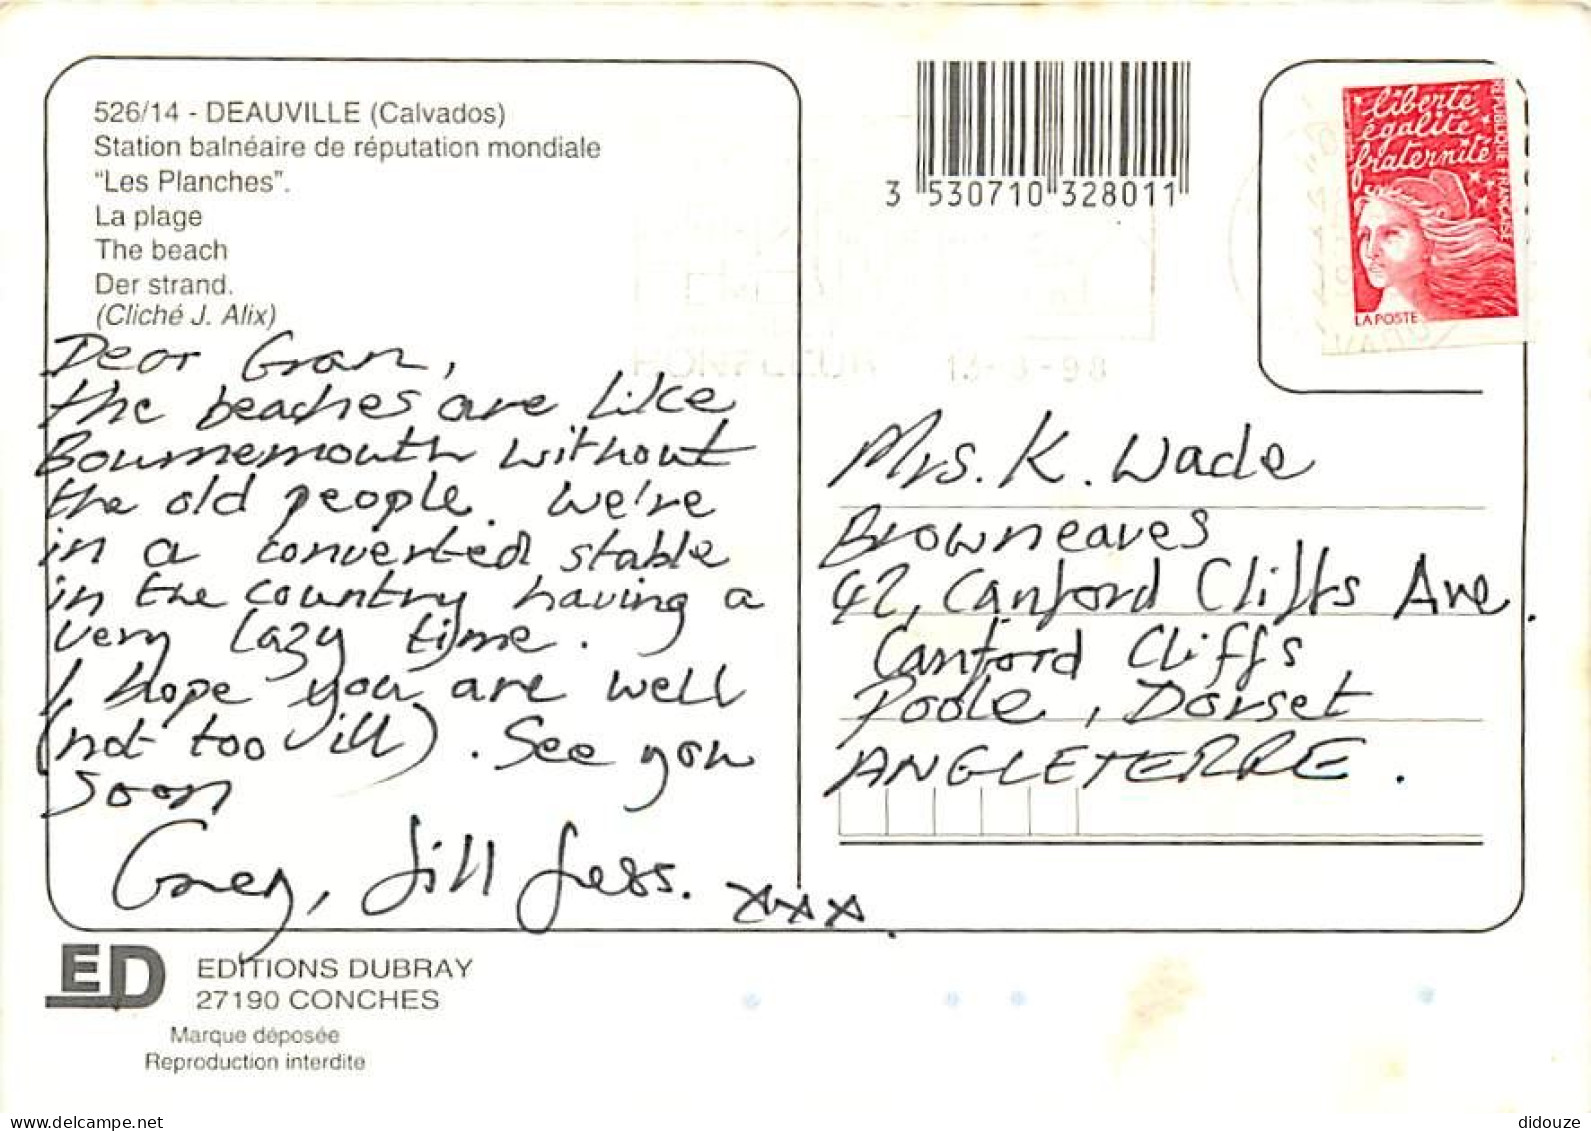 526/14 - DEAUVILLE (Calvados)
Station balnéaire de réputation mondiale
"Les Planches".
La plage
The beach
Der strand.
(Cliché J. Alix)
Dear Gran,
the beaches are like
Bournemouth without
the old people. We're
in a converted stable
in the country having a
very lazy time.
I hope you are well
(not too ill). See you
soon
Greg, Jill Jess. xxx.
3 530710 328011
liberté
égalité
fraternité
REPUBLIQUE FRANÇAISE
LA POSTE
HONFLEUR 13-8-98
Mrs. K. Wade
Browneaves
42, Canford Cliffs Ave.
Canford Cliffs
Poole, Dorset
ANGLETERRE.
ED
EDITIONS DUBRAY
27190 CONCHES
Marque déposée
Reproduction interdite
delcampe.net
didouze